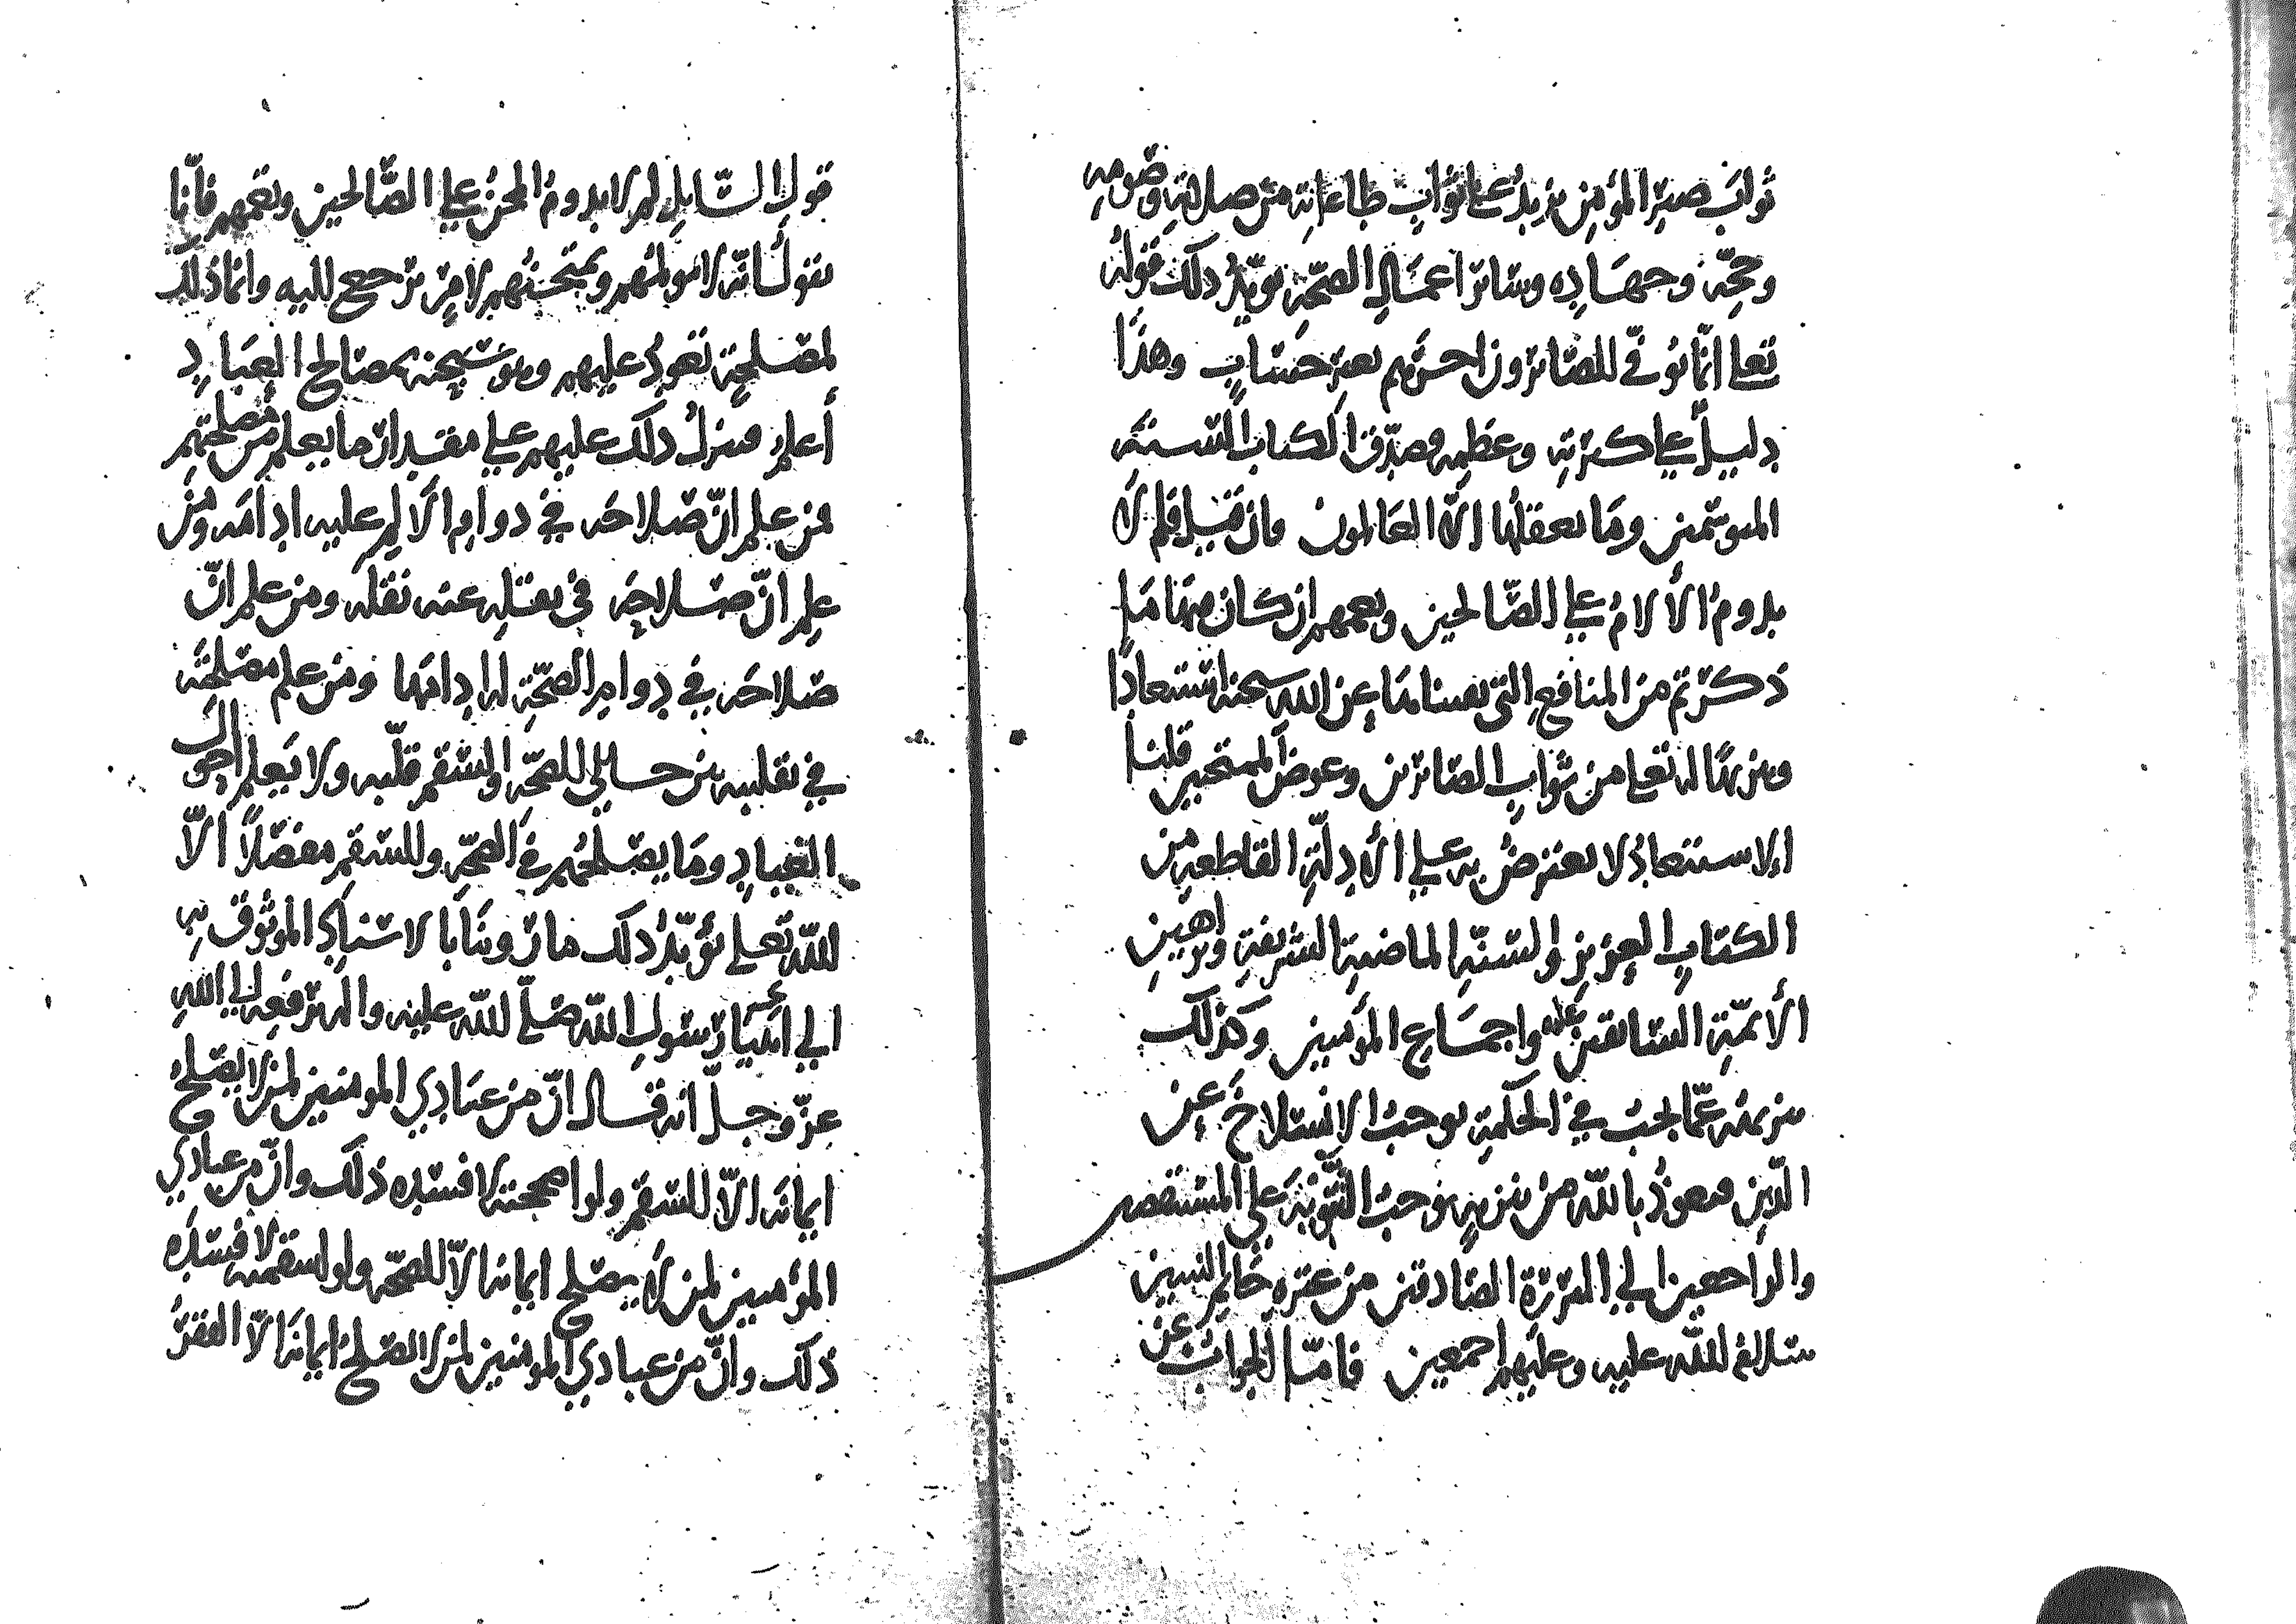 ثوابَ صبرِ المؤمن يزيدُ على ثوابِ طاعاتِه من صلاتِه وصومِه
وحجّه وجهَادِه وسَائر أعمَالِ الصّحّة يؤيّدُ ذلك قولُه
تعالى انّما يوفّى الصّابرون اجرَهم بغير حسَابٍ وهذا
دليلٌ على كثرتِه وعظمِه وصدّق الكتاب السنه
وما يعقلُها الاّ العَالمون فان قيل فلم لا
يدومُ الألامُ على الصّالحين ويعمهم ان كان فيها مَا
ذكرتم من المنافع التى
من ثوابِ الصّابرين وعوض الممتحنين قلنا
الاستبعادُ لا يعترضُ به على الأدِلّةِ القاطعةِ من
الكتابِ العزيزِ والسّنّةِ الماضيةِ الشريفةِ وبراهينِ
الأئمّةِ السّابقين عليهم واجمَاع المؤمنين وكذلك
تنزيهُه عمّا يجبُ في الحكمةِ يوجبُ الانسلاخَ عن
الدّين ونعوذُ بالله من تنزيهٍ يوجبُ التّوبَة على المستبصرين
والراجعين الى البررة الصّادقين من عترة خاتم النبيين
سلامُ الله عليه وعليهم اجمعين فامّا الجوابُ عن
قول السّايل لم لا يدومُ المحنُ على الصّالحين ويعمهم فانّا
نقولُ انّه لا يؤلمُهم ويمتحنُهم لامرٍ يرجع اليه وانّما ذلك
لمصلحةٍ تعودُ عليهم وهو سبحنه بمصالح العبَادِ
أعلمُ فينزلُ ذلك عليهم على مقدار ما يعلم من مصلحتِهم
فمن علم انّ صَلاحَه في دوام الألام عليه ادامَه ومن
علم انّ صَلاحَه في نقلِه عنه نقلَه ومن علم انّ
صَلاحَه في دوام الصّحّةِ له ادامَها ومن علم مصلحتَه
في تقليبه بين حالي الصّحّة والسّقم قلّبه ولا يَعلم احوالَ
العبادِ ومَا يصلحُهم في الصّحّةِ والسّقم مفصّلاً الاّ
اللّه تعلى يؤيّدُ ذلك ما رويناه بالاسنادِ الموثوق به
الى رسولِ اللّه صَلّى اللّه عليه واله يرفعه الى اللّه
عزّ وجلّ انه قال انّ من عبَادِي المؤمنين لمن لا يصلحُ
ايمانَه الاّ السّقم ولو اصححتُه لافسَده ذلك وانّ من عبادي
المؤمنين لمن لا يصلح ايمانَه الاّ الصّحّه ولو اسقمته لافسَدَه
ذلك وانّ من عبادي المؤمنين لمن لا يصلحُ ايمانَه الاّ الفقرُ